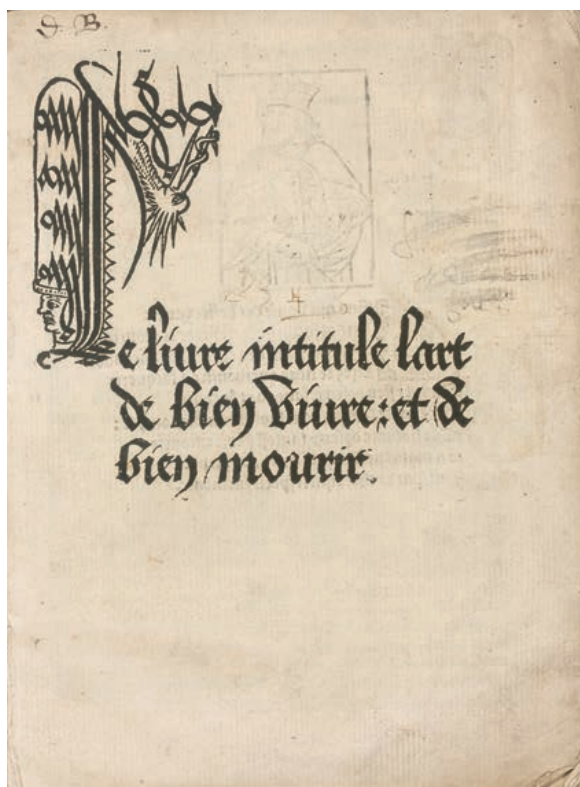 S. B.
Le liure intitule lart
de bien viure: et de
bien mourir.